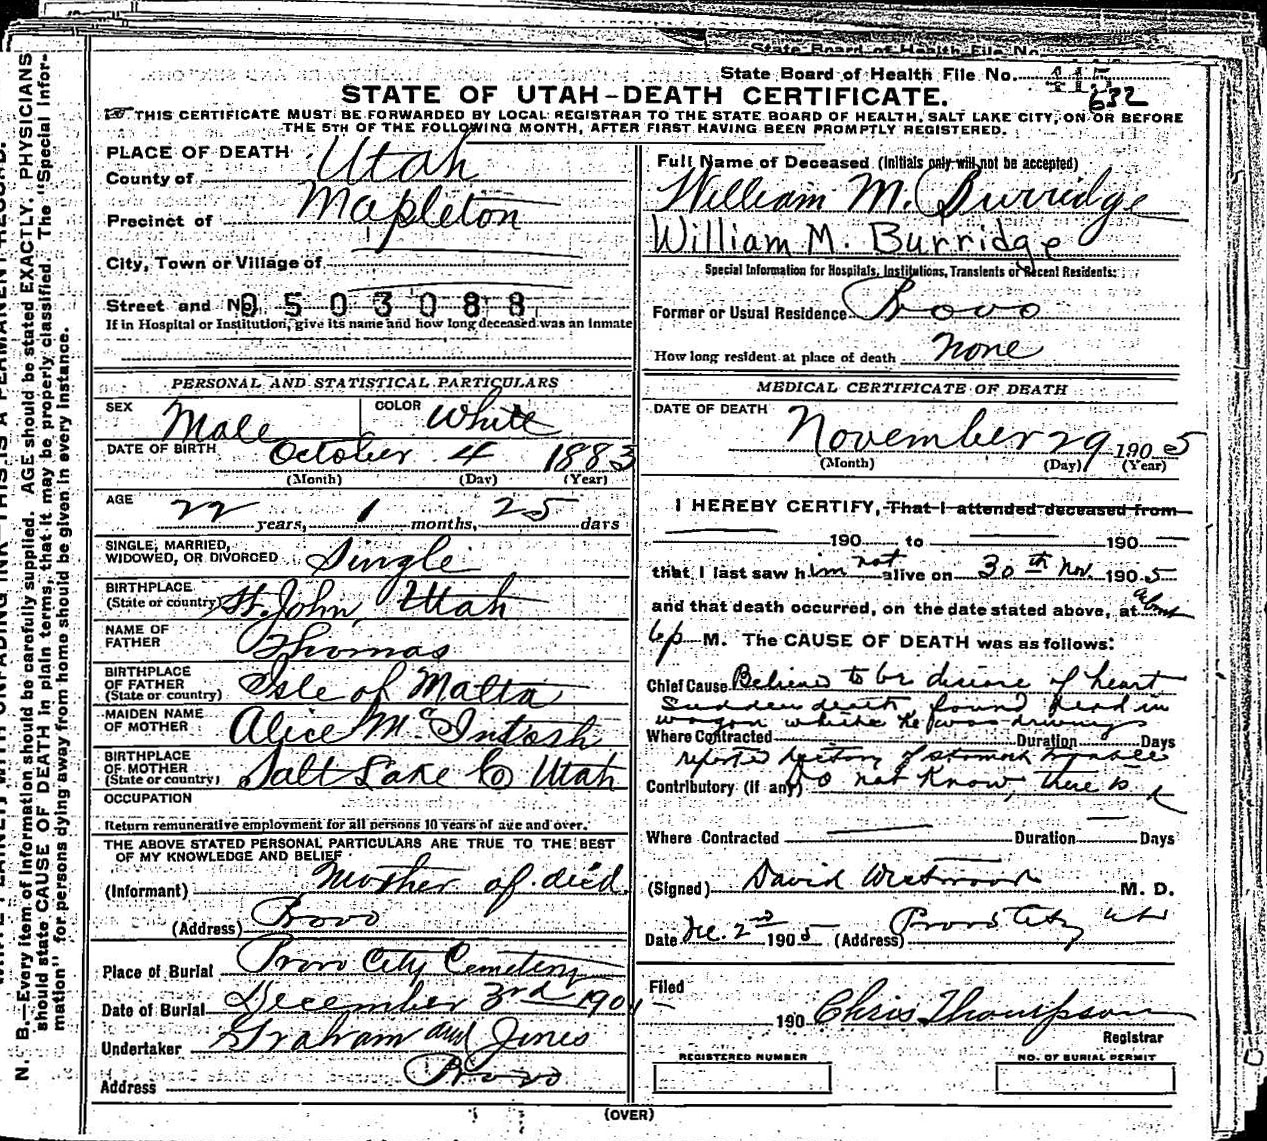 State Board of Health File No.
State Board of Health File No. 415
632
STATE OF UTAH-DEATH CERTIFICATE.
THIS CERTIFICATE MUST BE FORWARDED BY LOCAL REGISTRAR TO THE STATE BOARD OF HEALTH, SALT LAKE CITY, ON OR BEFORE
THE 5TH OF THE FOLLOWING MONTH, AFTER FIRST HAVING BEEN PROMPTLY REGISTERED.
PLACE OF DEATH
County of Utah
Precinct of Mapleton
City, Town or Village of
Street and No. 0503088
If in Hospital or Institution, give its name and how long deceased was an inmate
PERSONAL AND STATISTICAL PARTICULARS
SEX Male COLOR White
DATE OF BIRTH October 4 1883
(Month) (Day) (Year)
AGE 22 years, 1 months, 25 days
SINGLE, MARRIED,
WIDOWED, OR DIVORCED Single
BIRTHPLACE
(State or country) St. John, Utah
NAME OF
FATHER Thomas
BIRTHPLACE
OF FATHER
(State or country) Isle of Malta
MAIDEN NAME
OF MOTHER Alice McIntosh
BIRTHPLACE
OF MOTHER
(State or country) Salt Lake Co Utah
OCCUPATION
Return remunerative employment for all persons 10 years of age and over.
THE ABOVE STATED PERSONAL PARTICULARS ARE TRUE TO THE BEST
OF MY KNOWLEDGE AND BELIEF
(Informant) Mother of dec'd.
(Address) Provo
Place of Burial Provo City Cemetery
Date of Burial December 3rd 190
Undertaker Graham and Jones
Address Provo
Full Name of Deceased (Initials only will not be accepted)
William M. Burridge
William M. Burridge
Special Information for Hospitals, Institutions, Transients or Recent Residents:
Former or Usual Residence Provo
How long resident at place of death none
MEDICAL CERTIFICATE OF DEATH
DATE OF DEATH November 29 1905
(Month) (Day) (Year)
I HEREBY CERTIFY, That I attended deceased from
190 to 190
that I last saw him not alive on 30th Nov. 1905
and that death occurred, on the date stated above, at about
6 p M. The CAUSE OF DEATH was as follows:
Chief Cause Believed to be disease of heart
Sudden death, found dead in
wagon which he was driving
Where Contracted Duration Days
reported history of stomach trouble
Contributory (if any) Do not know, there is
Where Contracted Duration Days
(Signed) David Westwood M. D.
Date Dec. 2nd 1905 (Address) Provo City Utah
Filed
190 Chris Thompson
Registrar
REGISTERED NUMBER
NO. OF BURIAL PERMIT
(OVER)
N. B.—Every item of information should be carefully supplied. AGE should be stated EXACTLY. PHYSICIANS
should state CAUSE OF DEATH in plain terms, that it may be properly classified. The "Special Infor-
mation" for persons dying away from home should be given in every instance.